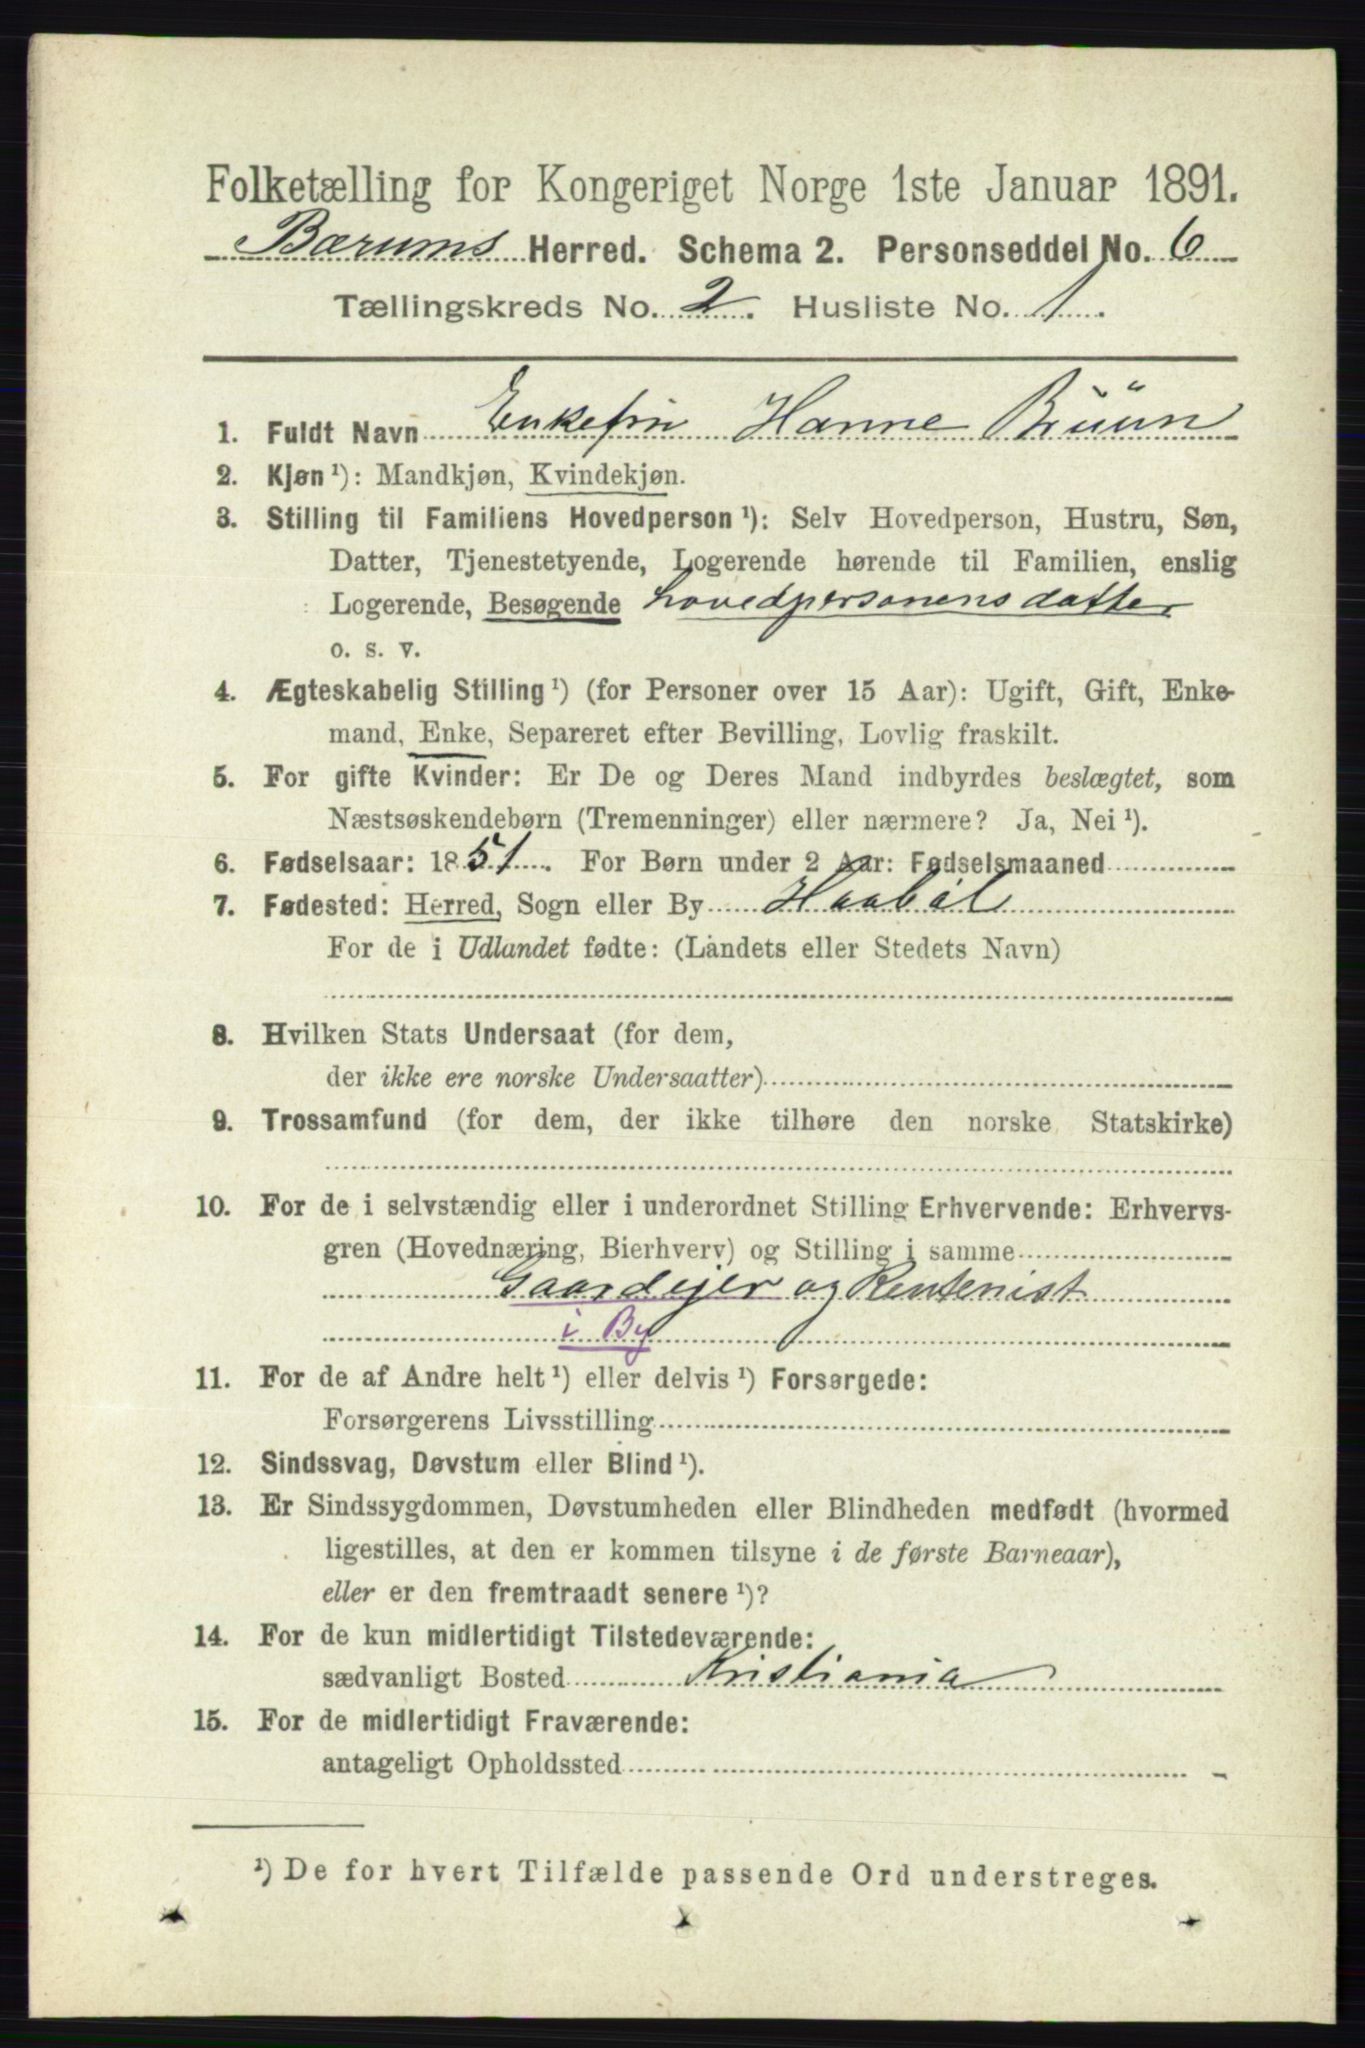 Folketælling for Kongeriget Norge 1ste Januar 1891.
Bærums Herred. Schema 2. Personseddel No. 6
Tællingskreds No. 2. Husliste No. 1.
1. Fuldt Navn Enkefru Hanne Brüün
2. Kjøn ¹): Mandkjøn, Kvindekjøn.
3. Stilling til Familiens Hovedperson ¹): Selv Hovedperson, Hustru, Søn,
Datter, Tjenestetyende, Logerende hørende til Familien, enslig
Logerende, Besøgende hovedpersonens datter
o. s. v.
4. Ægteskabelig Stilling ¹) (for Personer over 15 Aar): Ugift, Gift, Enke-
mand, Enke, Separeret efter Bevilling, Lovlig fraskilt.
5. For gifte Kvinder: Er De og Deres Mand indbyrdes beslægtet, som
Næstsøskendebørn (Tremenninger) eller nærmere? Ja, Nei ¹).
6. Fødselsaar: 1851. For Børn under 2 Aar: Fødselsmaaned
7. Fødested: Herred, Sogn eller By Haabøl
For de i Udlandet fødte: (Landets eller Stedets Navn)
8. Hvilken Stats Undersaat (for dem,
der ikke ere norske Undersaatter)
9. Trossamfund (for dem, der ikke tilhøre den norske Statskirke)
10. For de i selvstændig eller i underordnet Stilling Erhvervende: Erhvervs-
gren (Hovednæring, Bierhverv) og Stilling i samme
Gaardejer og Rentenist
i By
11. For de af Andre helt ¹) eller delvis ¹) Forsørgede:
Forsørgerens Livsstilling
12. Sindssvag, Døvstum eller Blind ¹).
13. Er Sindssygdommen, Døvstumheden eller Blindheden medfødt (hvormed
ligestilles, at den er kommen tilsyne i de første Barneaar),
eller er den fremtraadt senere ¹)?
14. For de kun midlertidigt Tilstedeværende:
sædvanligt Bosted Kristiania
15. For de midlertidigt Fraværende:
antageligt Opholdssted
¹) De for hvert Tilfælde passende Ord understreges.